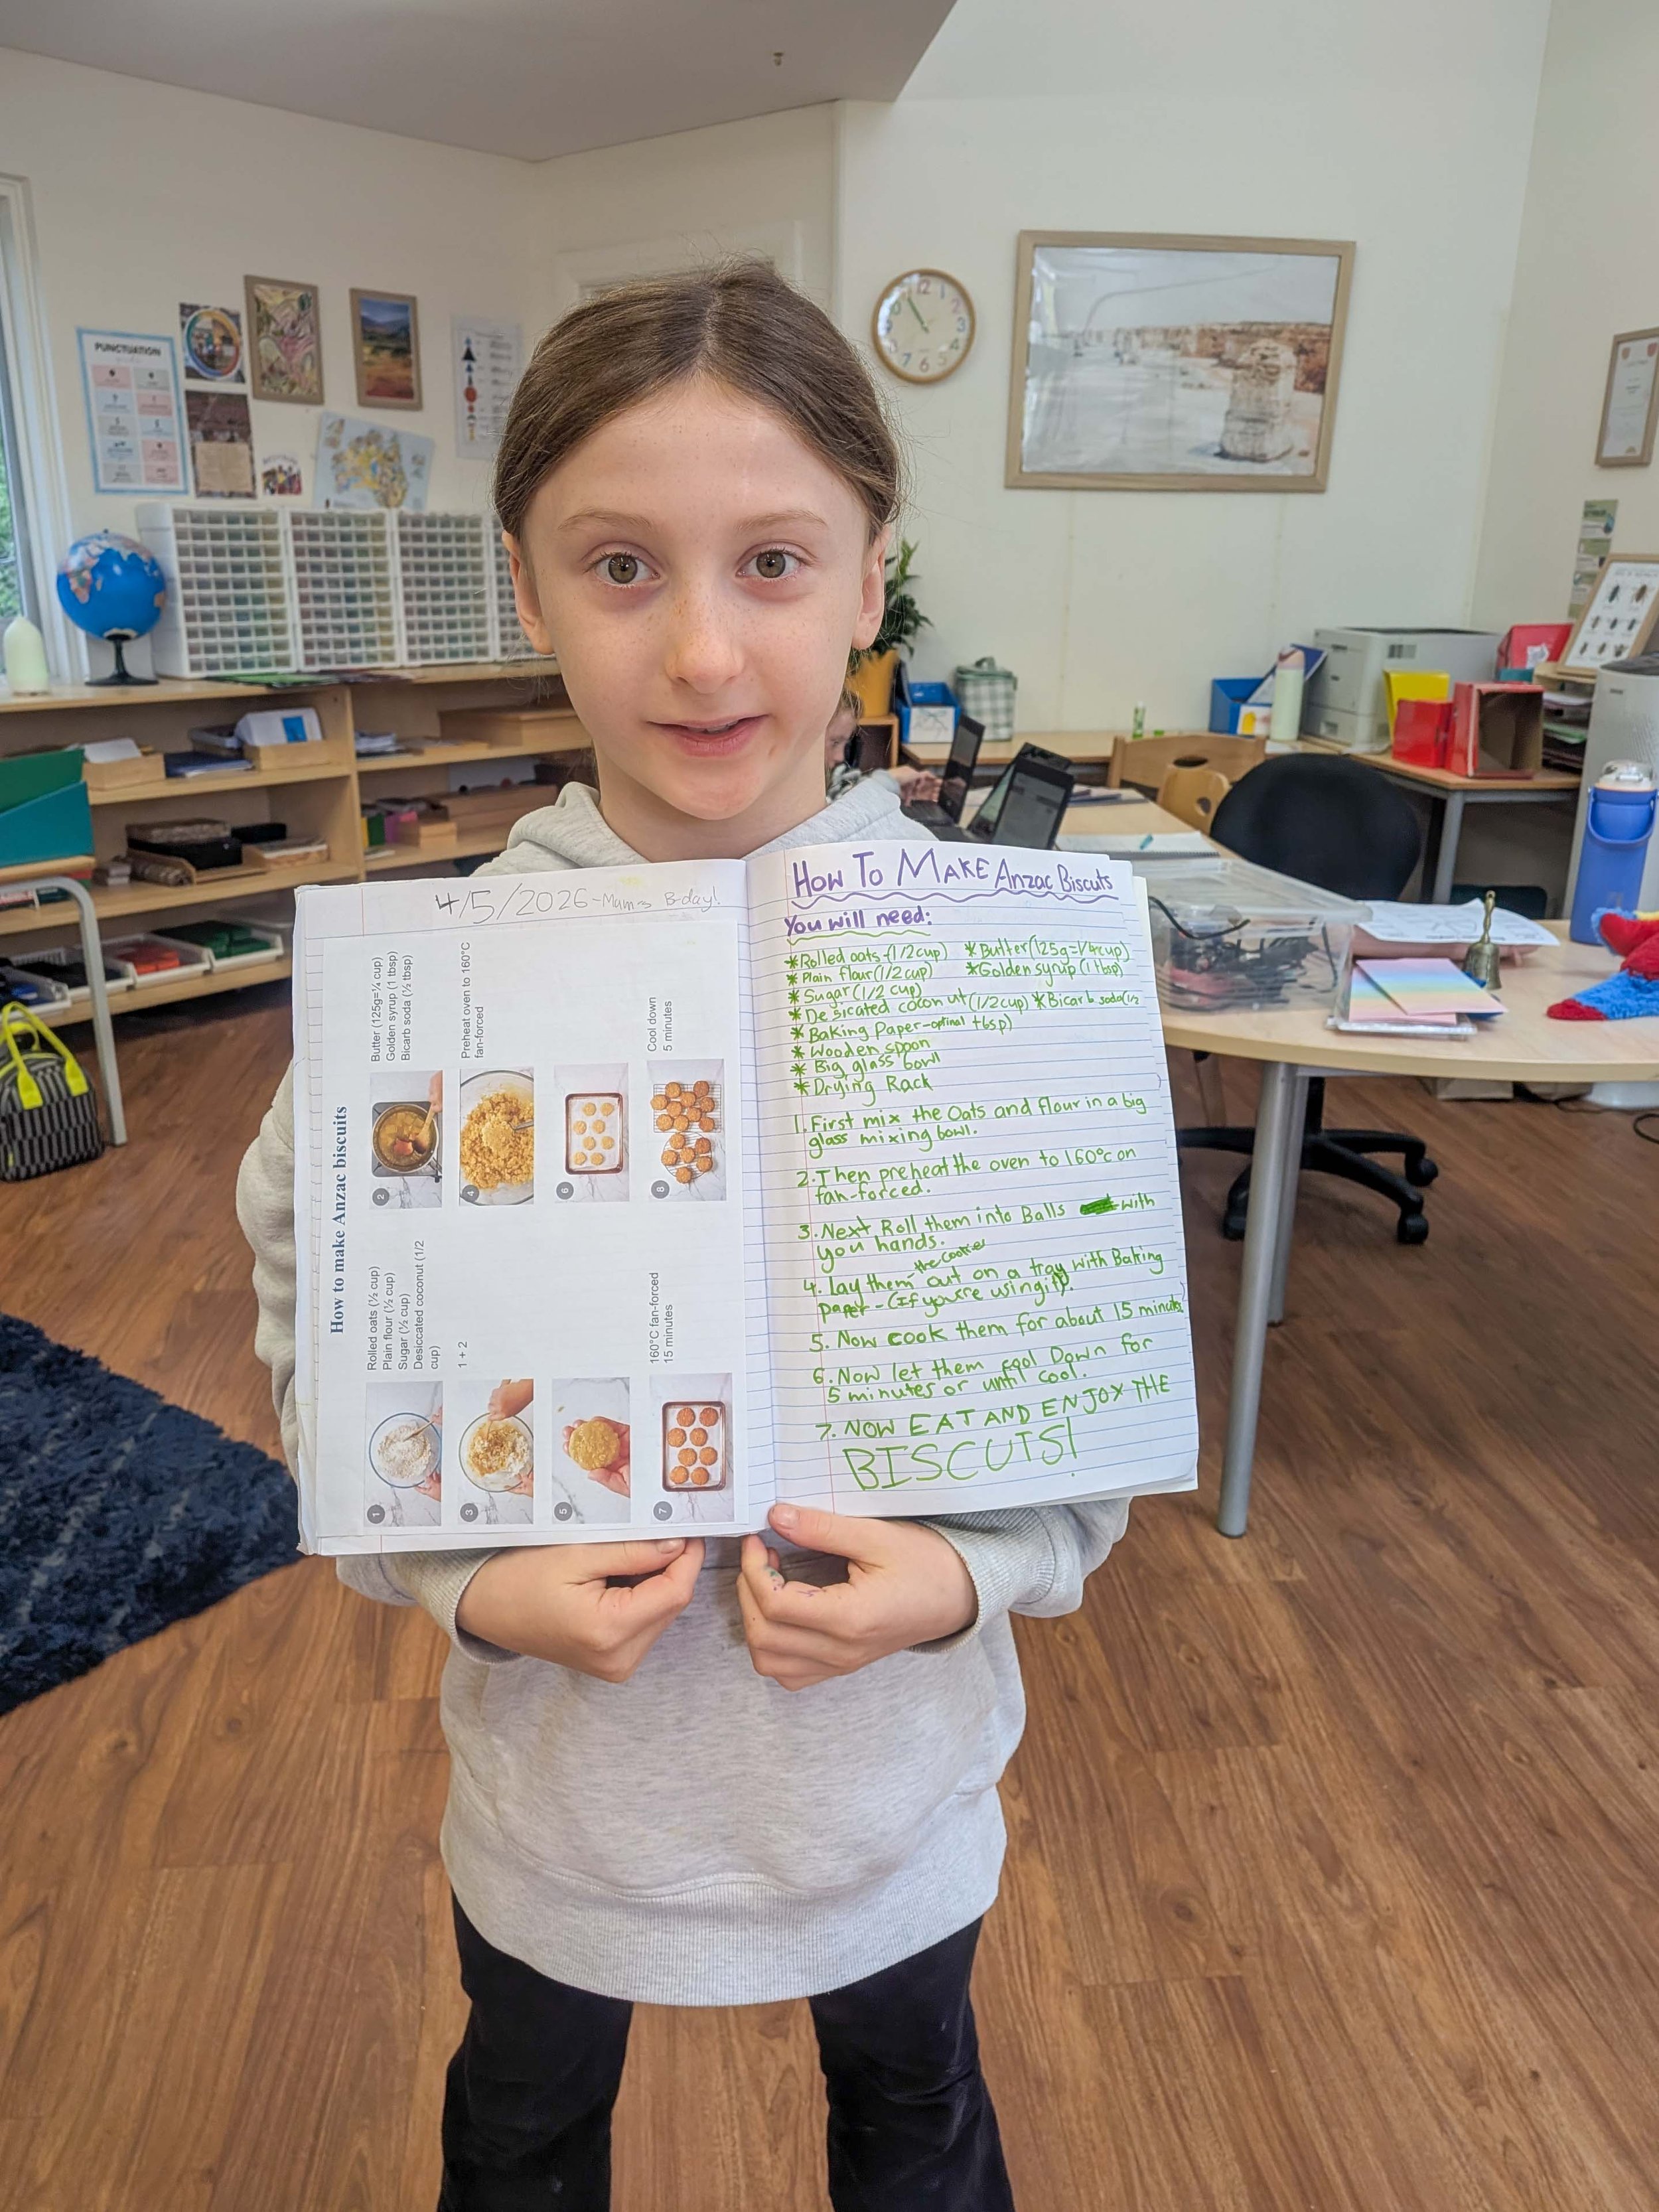 PUNCTUATION
4/5/2026-Mamas B-day!
How to make Anzac biscuits
1
Rolled oats (½ cup)
Plain flour (½ cup)
Sugar (½ cup)
Desiccated coconut (1/2
cup)
2
Butter (125g=¼ cup)
Golden syrup (1 tbsp)
Bicarb soda (½ tbsp)
3
1 + 2
4
Preheat oven to 160°C
fan-forced
5
6
7
160°C fan-forced
15 minutes
8
Cool down
5 minutes
How To Make Anzac Biscuts
You will need:
*Rolled oats-(1/2cup) *Butter(125g=1/4cup)
*Plain flour(1/2cup) *Golden syrup (1 tbsp)
*Sugar(1/2 cup)
*Desicated coconut(1/2cup) *Bicarb soda(1/2
*Baking Paper-optinal tbsp)
*Wooden spoon
*Big glass bowl
*Drying Rack
1. First mix the Oats and flour in a big
glass mixing bowl.
2. Then preheat the oven to 160°c on
fan-forced.
3. Next Roll them into Balls with
you hands.
the cookies
4. Lay them out on a tray with Baking
paper-(If you're using it).
5. Now cook them for about 15 minutes
6. Now let them cool Down for
5 minutes or until cool.
7. NOW EAT AND ENJOY THE
BISCUTS!